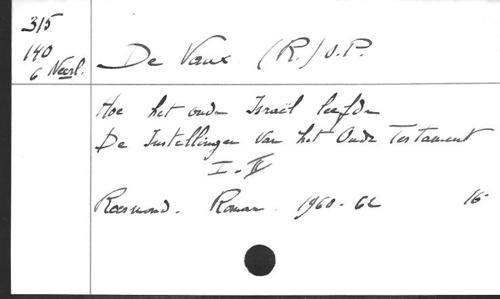 315
140
6 Neerl.
De Vaux (R.) O.P.
Hoe het oude Israël leefde
De Instellingen van het Oude Testament
I-IV
Roermond. Romen. 1960-62 16-